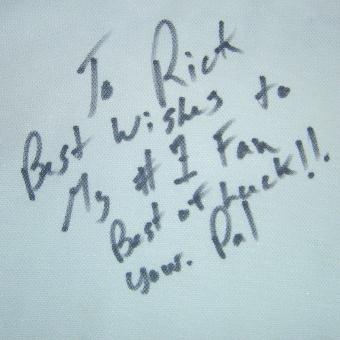 To Rick
Best Wishes to
My # 1 Fan
Best of Luck!!.
your. Pal